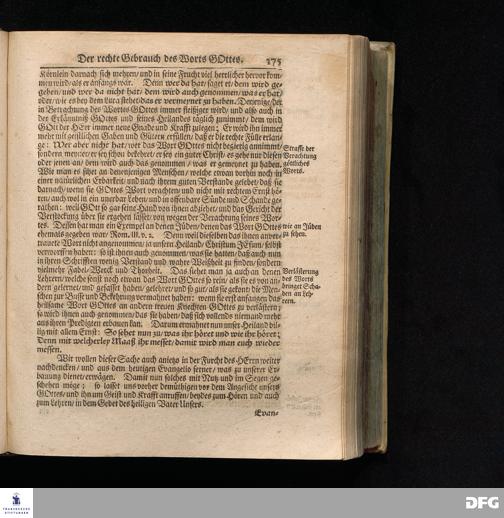 Der rechte Gebrauch des Worts GOttes. 175
Körnlein darnach sich mehren / und in seine Frucht viel herrlicher hervor kom-
men wird / als er anfangs war. Denn wer da hat / saget er / dem wird ge-
geben / und wer da nicht hat / dem wird auch genommen / was er hat /
oder / wie es bey dem Luca stehet / das er vermeynet zu haben. Derjenige / der
in Betrachtung des Wortes GOttes immer fleißiger wird / und also auch in
der Erkäntniß GOttes und seines Heilandes täglich zunimmt / dem wird
GOtt der HErr immer neue Gnade und Krafft zulegen; Er wird ihn immer
mehr mit geistlichen Gaben und Gütern erfüllen / daß er die rechte Fülle erlan-
ge: Wer aber nicht hat / wer das Wort GOttes nicht begierig annimmt /
sondern meynet / er sey schon bekehret / er sey ein guter Christ / es gehe nur diesen
oder jenen an / dem wird auch das genommen / was er gemeynet zu haben.
Straffe der
Verachtung
göttliches
Worts.
Wie man es siehet an denenjenigen Menschen / welche etwan vorhin noch in
einer natürlichen Erbarkeit / und nach ihrem guten Verstande gelebet / daß sie
darnach / wenn sie GOttes Wort verachten / und nicht mit rechtem Ernst hö-
ren / auch wol in ein unerbar Leben / und in offenbare Sünde und Schande ge-
rathen: weil GOtt so gar seine Hand von ihnen abziehet / und das Gericht der
Verstockung über sie ergehen lässet / von wegen der Verachtung seines Wor-
tes. Dessen hat man ein Exempel an denen Jüden / denen das Wort GOttes
ehemals gegeben war Rom. III. v. 2. Denn weil dieselben das ihnen anver-
trauete Wort nicht angenommen / ja unsern Heiland / Christum JEsum / selbst
wie an Jüden
zu sehen.
verworffen haben: so ist ihnen auch genommen / was sie hatten / daß auch nun
in ihren Schrifften wenig Verstand und wahre Weißheit zu finden / sondern
vielmehr Fabel-Werck und Thorheit. Das siehet man ja auch an denen
Lehrern / welche sonst noch etwan das Wort GOttes so rein / als sie es von an-
dern gelernet und gefasset haben / gelehret / und so gut / als sie gekont / die Men-
schen zur Busse und Bekehrung vermahnet haben: wenn sie erst anfangen das
heilsame Wort GOttes an andern treuen Knechten GOttes zu verlästern;
so wird ihnen auch genommen / das sie haben / daß sich vollends niemand mehr
aus ihren Predigten erbauen kan. Darum ermahnet nun unser Heiland bil-
lig mit allem Ernst: So sehet nun zu / was ihr höret und wie ihr höret;
Denn mit welcherley Maaß ihr messet / damit wird man euch wieder
messen.
Verlästerung
des Worts
bringet Scha-
den an Leh-
rern.
Wir wollen dieser Sache auch anietzo in der Furcht des HErrn weiter
nachdencken / und aus dem heutigen Evangelio ferner / was zu unserer Er-
bauung dienet / erwägen. Damit nun solches mit Nutz und im Segen ge-
schehen möge; so lasset uns vorher demüthigen vor dem Angesicht unsers
GOttes / und ihn um Geist und Krafft anruffen / beydes zum Hören und auch
zum Lehren / in dem Gebet des heiligen Vater Unsers.
Evan-
FRANCKESCHE
STIFTUNGEN
DFG